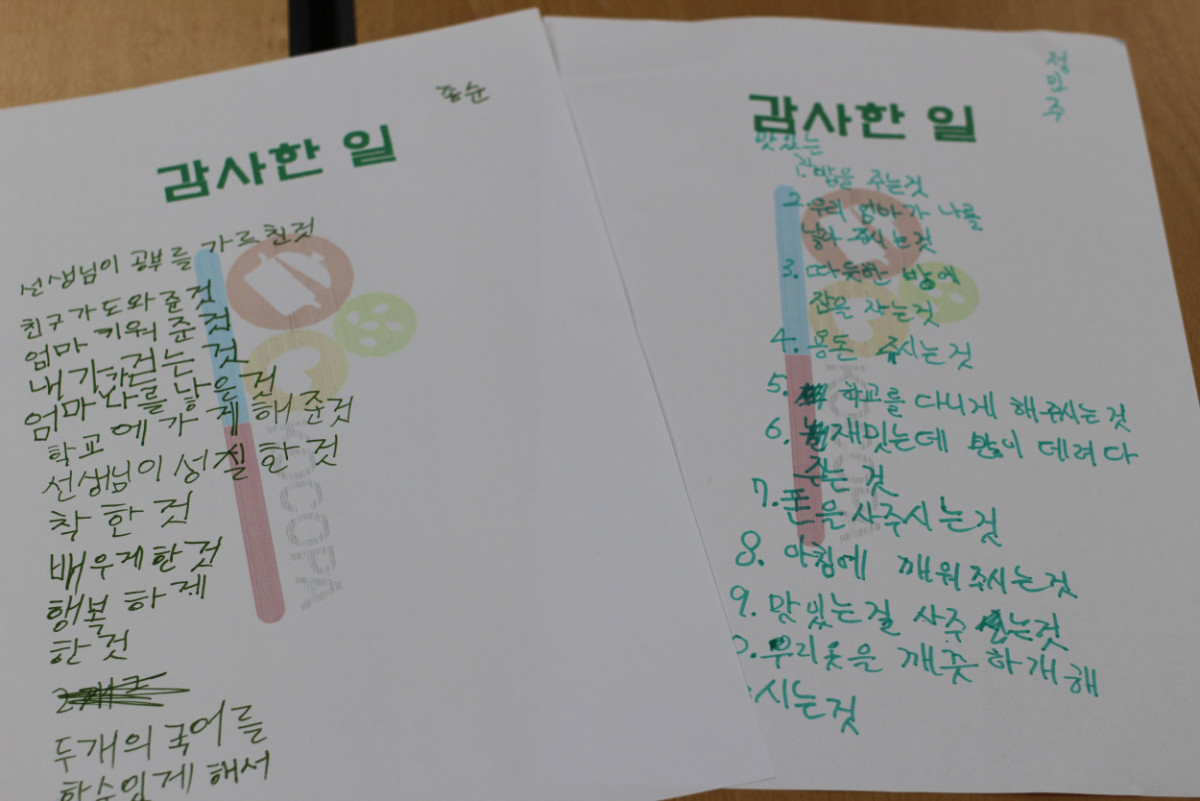 감사한 일
선생님이 공부를 가르친것
친구가 도와준것
엄마 키워 준것
내가 걷는 것
엄마 나를 낳은것
학교에 가게 해준것
선생님이 성질 한 것
착한것
배우게한것
행복 하게
한것
두개의 국어를
할수있게 해서
KOCOPA
정민주
감사한 일
맛있는
1. 밥을 주는것
2. 우리 엄마가 나를
낳아 주시는것
3. 따듯한 방에
잠을 자는것
4. 용돈 주시는것
5. 학교를 다니게 해주시는것
6. 재밌는데 많이 데려다
주는 것
7. 폰을 사주시는것
8. 아침에 깨워주시는것
9. 맛있는걸 사주는것
우리옷을 깨끗하개해
시는것